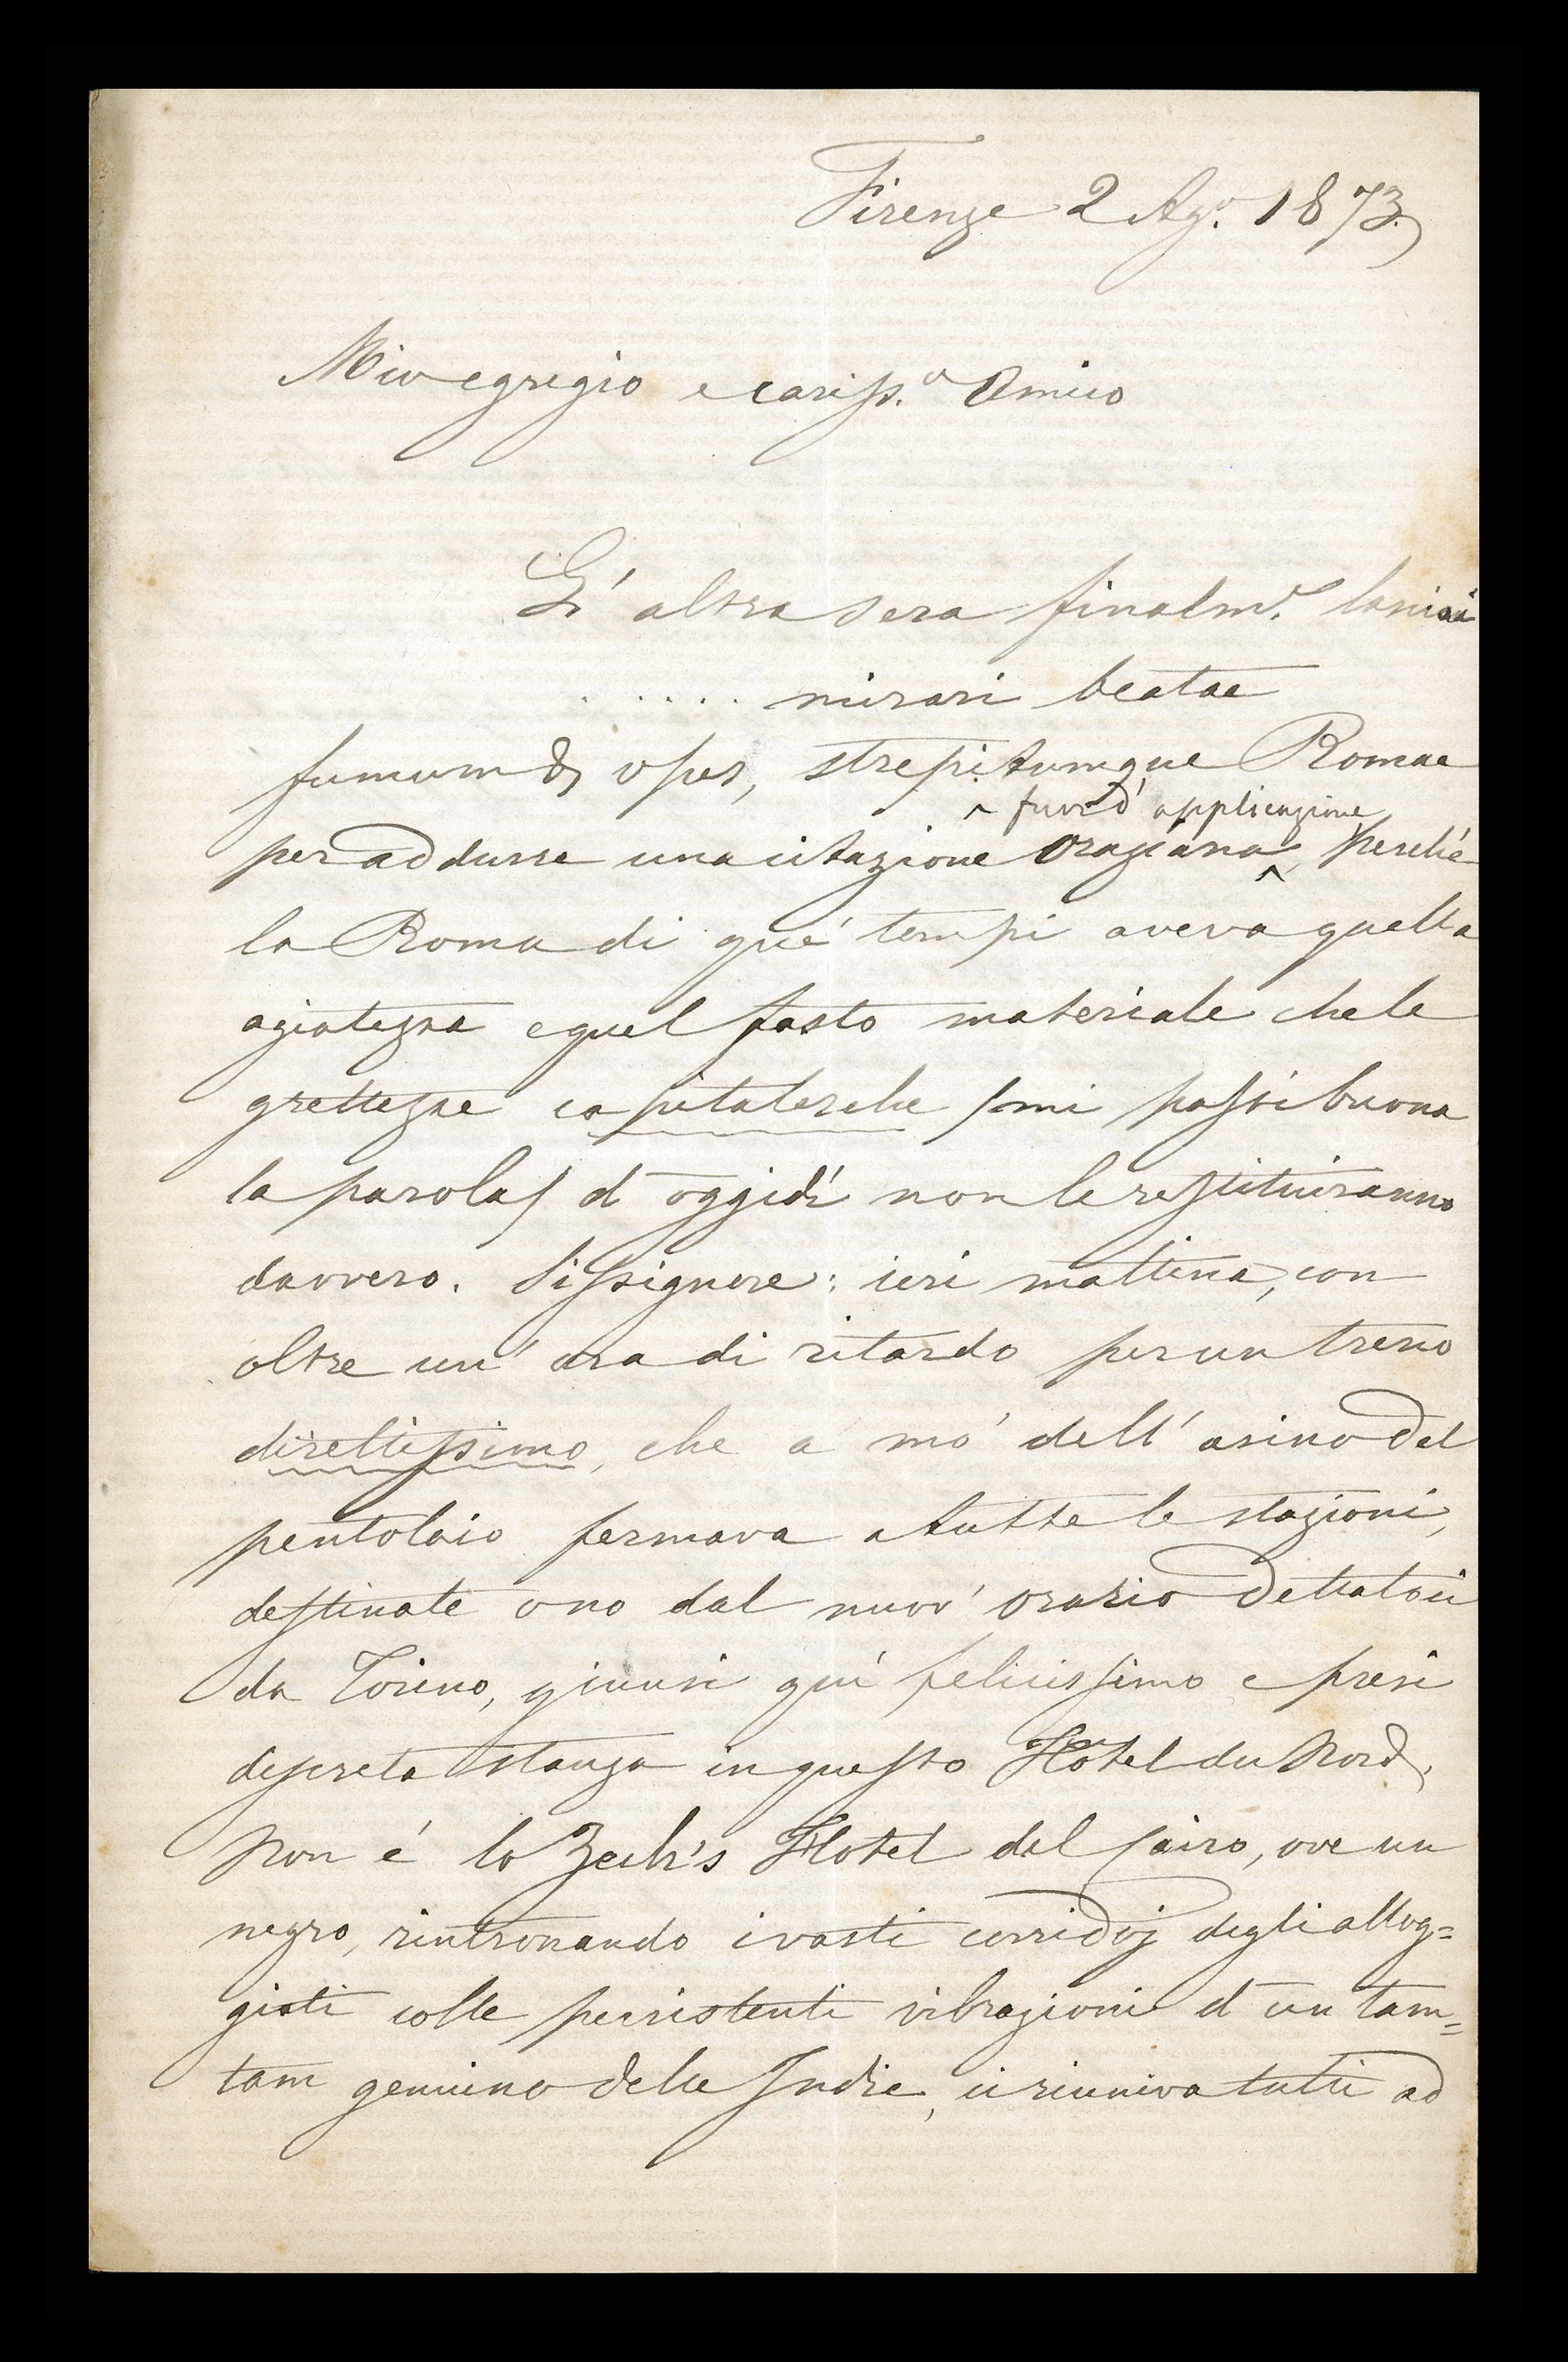 Firenze 2 Ag.o 1873.
Mio egregio e cariss.o Amico
L'altra sera finalm.e lasciai
..... mirari beatae
fumum & opes, strepitumque Romae
^ fuor d'applicazione
per addurre una citazione oraziana, perchè
la Roma di que' tempi aveva quella
agiatezza e quel fasto materiale che le
grettezze capitalesche (mi passi buona
la parola) d'oggidì non le restituiranno
davvero. Sissignore: ieri mattina, con
oltre un'ora di ritardo per un treno
direttissimo, che a mo' dell'asino del
pentolaio fermava a tutte le stazioni,
destinate o no dal nuov'orario dettatoci
da Torino, giunsi quì felicissimo e presi
discreta stanza in questo Hôtel du Nord.
Non è lo Zech's Hotel del Cairo, ove un
negro, rintronando i vasti corridoj degli allog=
giati colle persistenti vibrazioni d'un tam=
tam genuino delle Indie, ci riuniva tutti ad